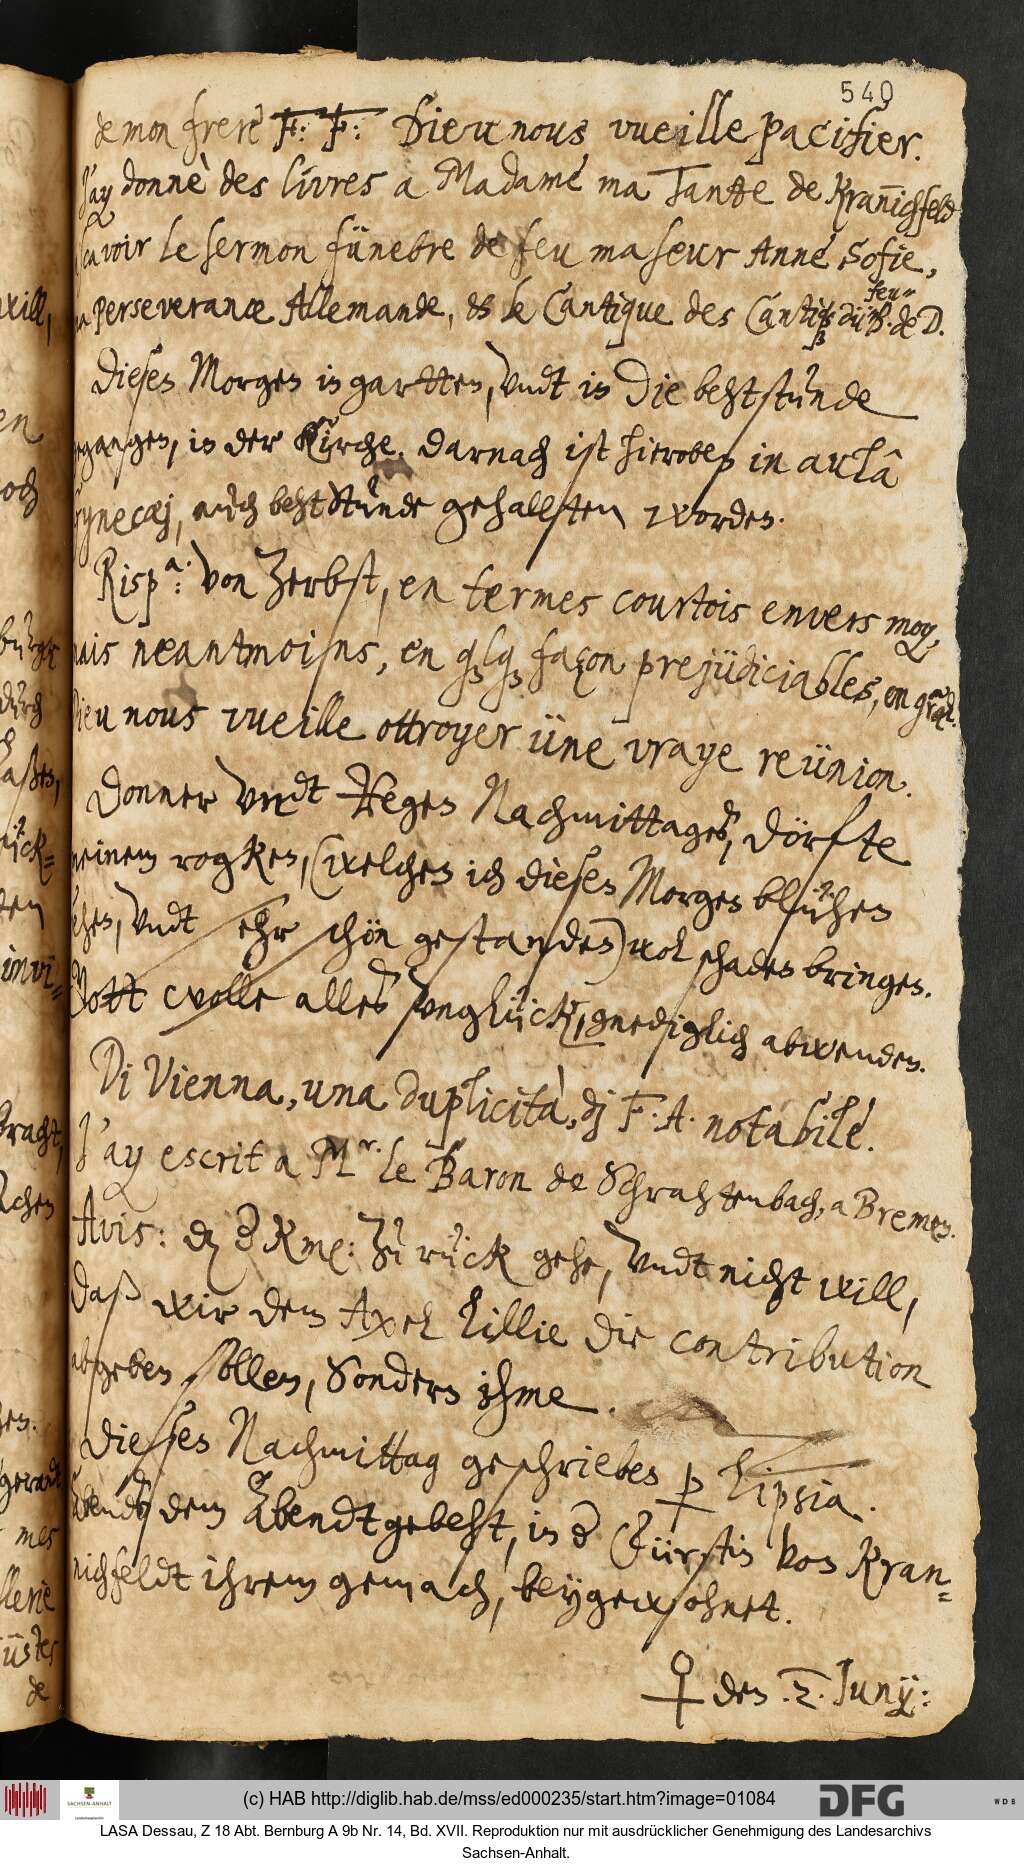 540
de mon frere F: F: Dieu nous vueille pacifier.
J'ay donnè des livres a Madame ma Tante de Kranichfeld
scavoir le sermon fünebre de feu ma seur Anne Sofie,
la Perseverance Allemande, & le Cantique des Cantiq
feu
de D.
Dieses Morgen in gartten, vndt in die behtstunde
gegangen, in der Kirche. darnach ist hieroben in aulâ
Gynecæj, auch behtstunde gehallten worden.
Rispa: von Zerbst, en termes courtois envers moy,
mais neantmoins, en qlq façon prejüdiciables, en
Dieu nous vueille ottroyer üne vraye reünion.
Donner vndt Regen Nachmittages, dörfte
meinem rogken, (welchen ich dieses Morgen blühen
sehen, vndt sehr schön gestanden) wol schaden bringen.
Gott wolle alles vnglück, gnediglich abwenden.
Di Vienna, una duplicità, dj F. A. notabile.
J'ay escrit a Mr. le Baron de Schrahtenbach, a Bremen.
Avis: dz d Kme: zu rück gehe, vndt nicht will,
daß wir dem Axel Lillie die contribution
abgeben sollen, sondern ihme.
Dieses Nachmittag geschrieben p Lipsia.
Abends dem Abendtgebeht, in d Fürstin von Kran-
nichfeldt ihrem gemach, beygewohnet.
♀ den .2. Junÿ:
will,
en
och
durch
ten
bracht,
chen
mes
de
(c) HAB http://diglib.hab.de/mss/ed000235/start.htm?image=01084
SACHSEN-ANHALT
DFG
WDB
LASA Dessau, Z 18 Abt. Bernburg A 9b Nr. 14, Bd. XVII. Reproduktion nur mit ausdrücklicher Genehmigung des Landesarchivs
Sachsen-Anhalt.